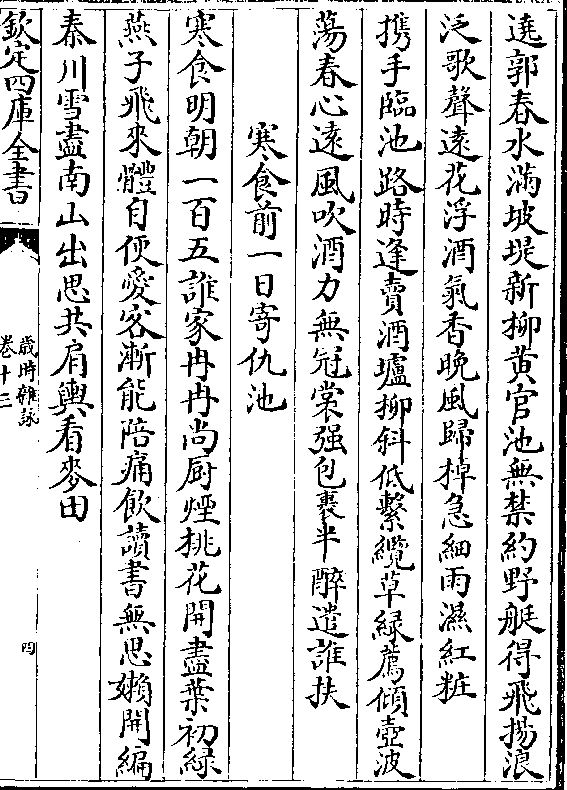 遶郭春水滿坡堤新柳黄官池無禁約野艇得飛揚浪
泛歌聲逺花浮酒氣香晚風歸棹急細雨濕紅粧
携手臨池路時逢賣酒壚柳斜低繫纜草緑薦傾壺波
蕩春心逺風吹酒力無冠裳强包裹半醉遣誰扶
寒食前一日寄仇池
寒食明朝一百五誰家冉冉尚厨煙桃花開盡葉初緑
燕子飛來體自便愛客漸能陪痛飲讀書無思嬾開編
秦川雪盡南山出思共肩輿看麥田
欽定四庫全書
歳時雜詠
卷十三
四